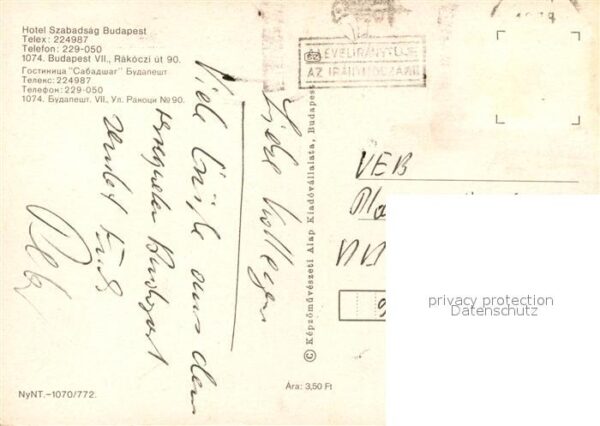 Hotel Szabadság Budapest
Telex: 224987
Telefon: 229-050
1074. Budapest VII., Rákóczi út 90.
Гостиница "Сабадшаг" Будапешт
Телекс: 224987
Телефон: 229-050
1074. Будапешт. VII., Ул. Ракоци № 90.
Liebe Kollegen
Viele Grüße aus dem
Budapest
sendet
NyNT.–1070/772.
© Képzőművészeti Alap Kiadóvállalata, Budapest
Ára: 3,50 Ft
AZ IRÁNYÍTÓSZÁM
VEB
privacy protection
Datenschutz